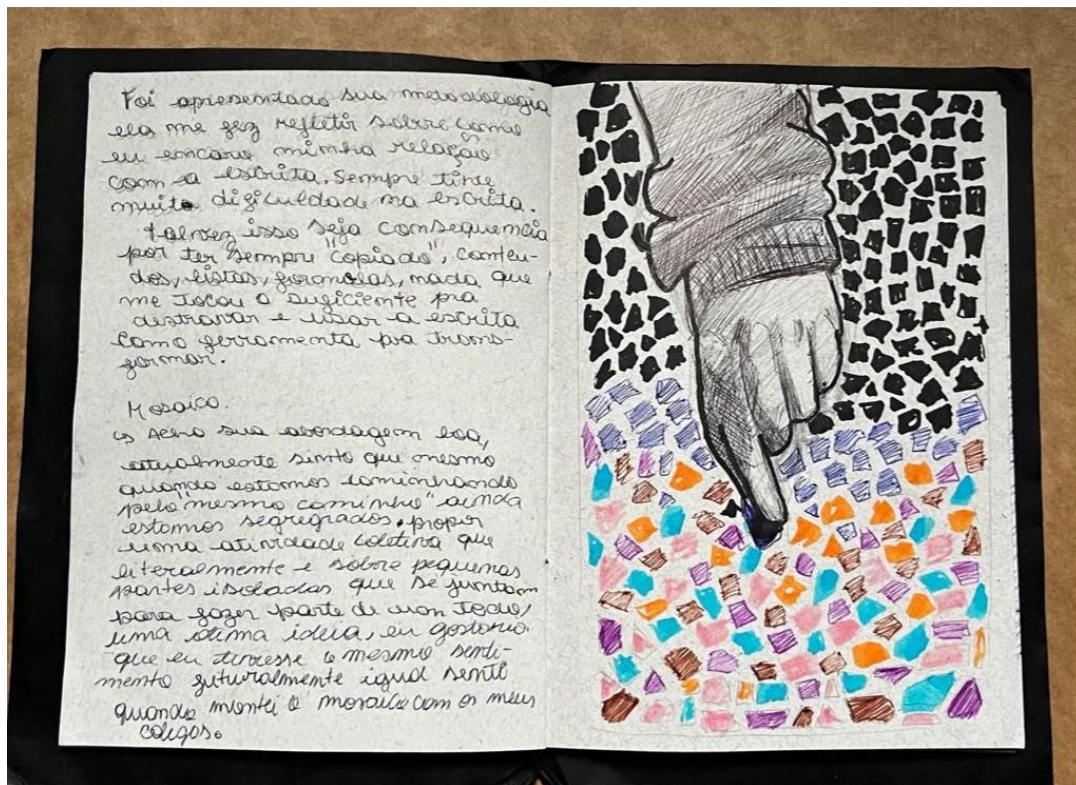 Foi apresentado sua metodologia
ela me fez refletir sobre como
eu encaro minha relação
com a escrita, sempre tive
muita dificuldade na escrita.
talvez isso seja consequencia
por ter sempre "copiado", conteu-
dos, listas, formolas, nada que
me tocou o suficiente pra
destravar e usar a escrita
como ferramenta pra trans-
formar.
Mosaico.
↳ Acho sua abordagem boa,
atualmente sinto que mesmo
quando estamos caminhando
pelo "mesmo caminho" ainda
estamos segregados. propor
uma atividade coletiva que
literalmente e sobre pequenas
partes isoladas que se juntam
para fazer parte de um todo,
uma ideia, eu gostaria
que eu tivesse o mesmo senti-
mento futuralmente igual senti
quando montei o mosaico com os meus
colegas.